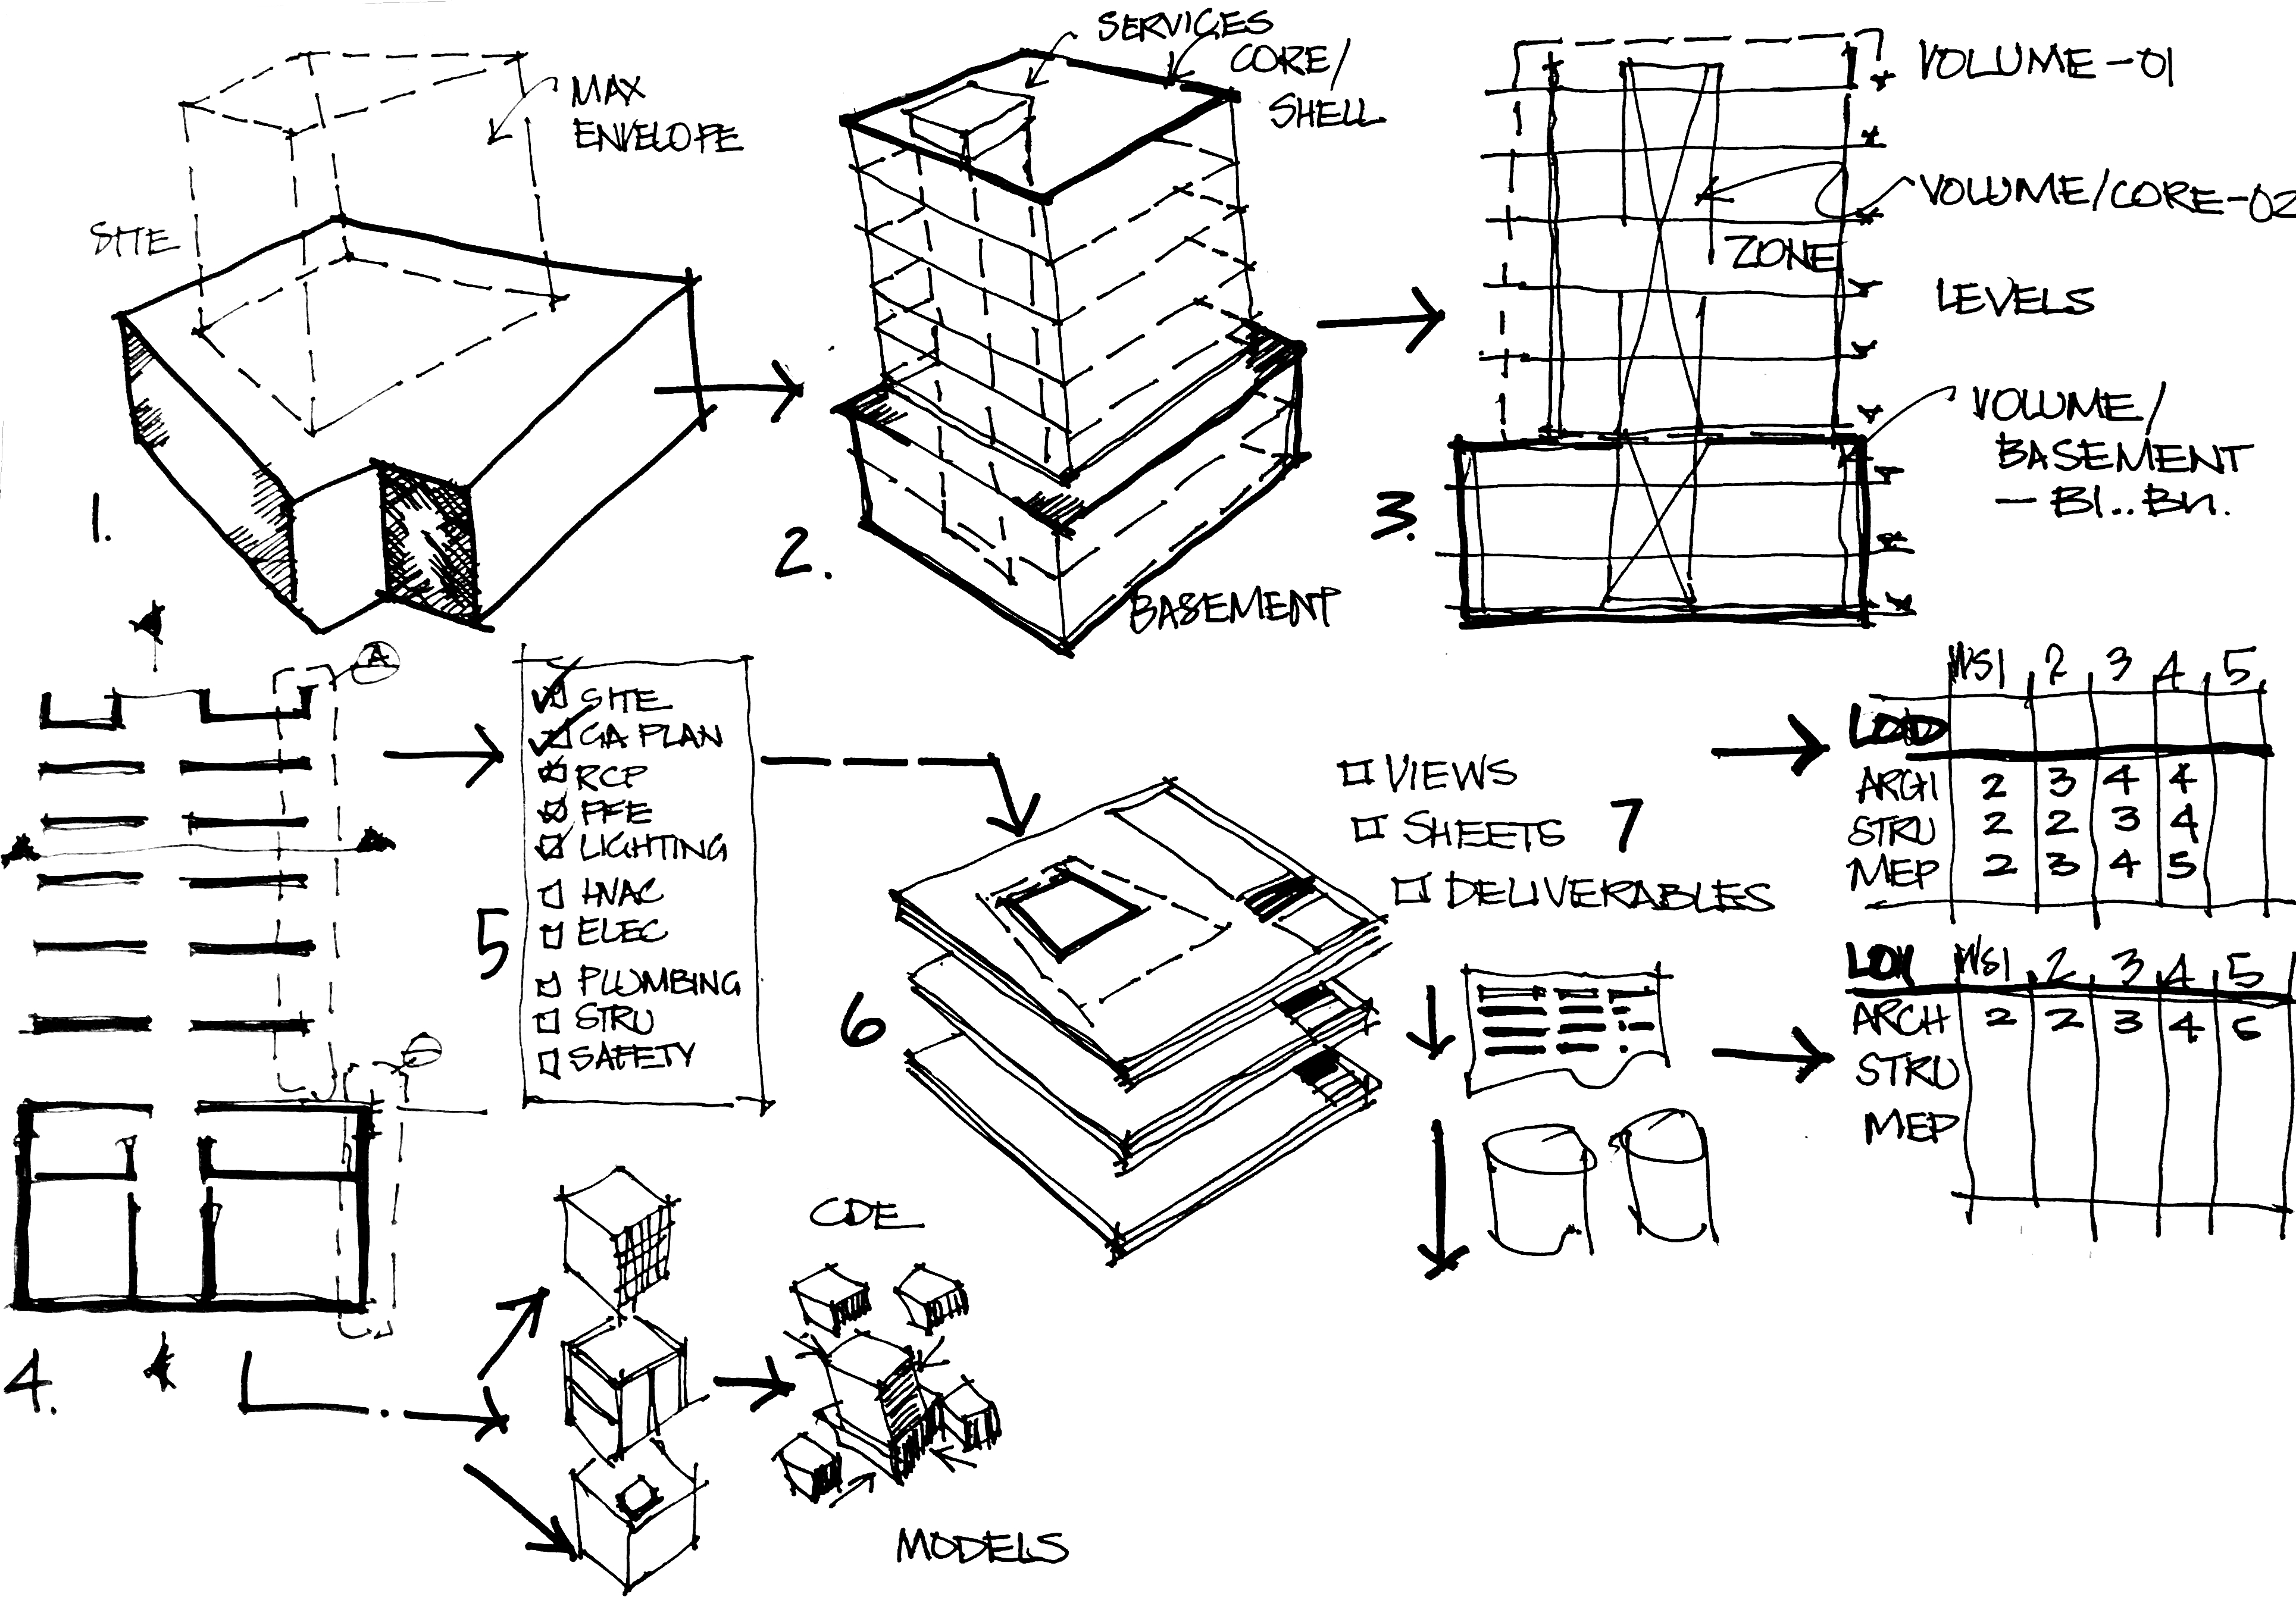 SITE
MAX
ENVELOPE
1.
SERVICES
CORE/
SHELL
2.
BASEMENT
VOLUME-01
VOLUME/CORE-02
ZONE
LEVELS
VOLUME/
BASEMENT
— B1..Bn.
3.
A
4.
5
SITE
GA PLAN
RCP
FFE
LIGHTING
HVAC
ELEC
PLUMBING
STRU
SAFETY
6
VIEWS
SHEETS
DELIVERABLES
7
WS1 2 3 4 5
LOD
ARCH 2 3 4 4
STRU 2 2 3 4
MEP 2 3 4 5
WS1 2 3 4 5
ARCH 2 2 3 4
STRU
MEP
CDE
MODELS